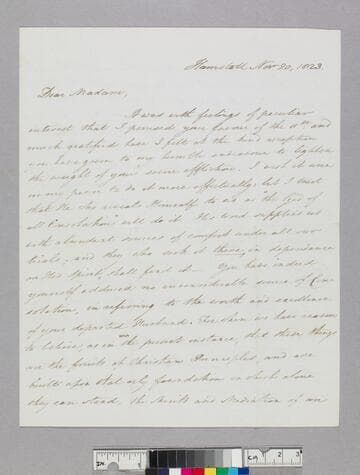 Hamstall Nov 20, 1823.
Dear Madam,
It was with feelings of peculiar
interest that I perused your favour of the 11th and
much gratified have I felt at the kind reception
you have given to my humble endeavour to lighten
the weight of your severe affliction. I wish it were
in my power to do it more effectually; but I trust
that He who reveals Himself to us as the "God of
all Consolation" will do it. His word supplies us
with abundant sources of comfort under all our
trials; and they who seek it there, in dependence
on His Spirit, shall find it. You have indeed
yourself adduced no inconsiderable source of Con
solation, in referring to the worth and excellence
of your departed Husband. For when we have reason
to believe, as in the present instance, that these things
are the fruits of Christian Principles, and are
built upon that only foundation on which alone
they can stand, the Merits and Mediation of our